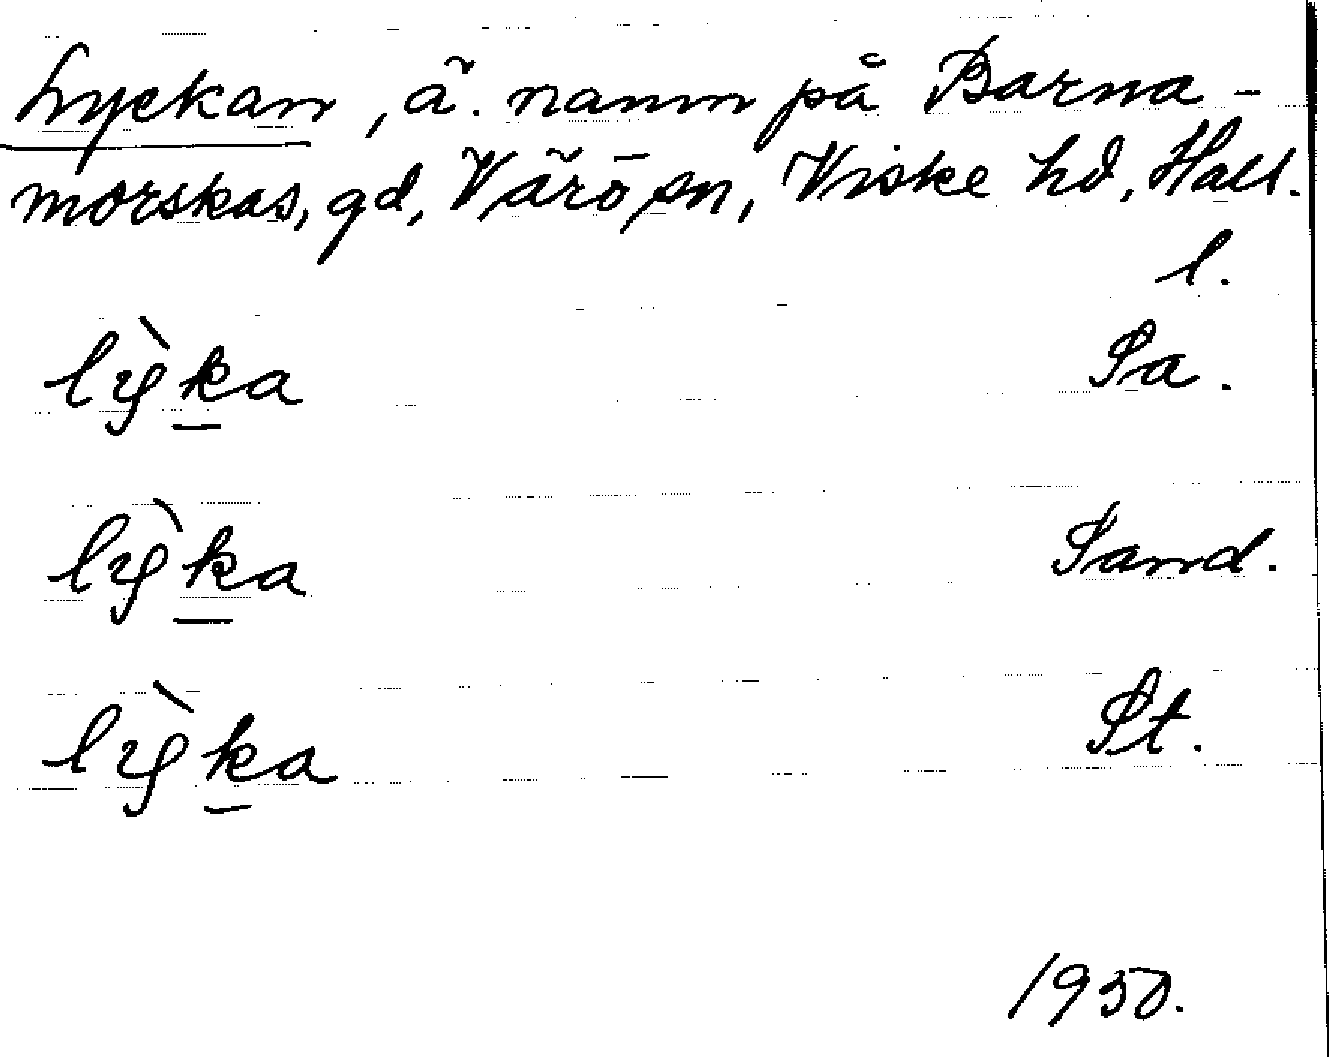 Lyckan, ä. namn på Barna-
morskas, gd, Värö sn, Viske hd, Hall.
l.
lỳka Sa.
lỳka Sand.
lỳka St.
1950.